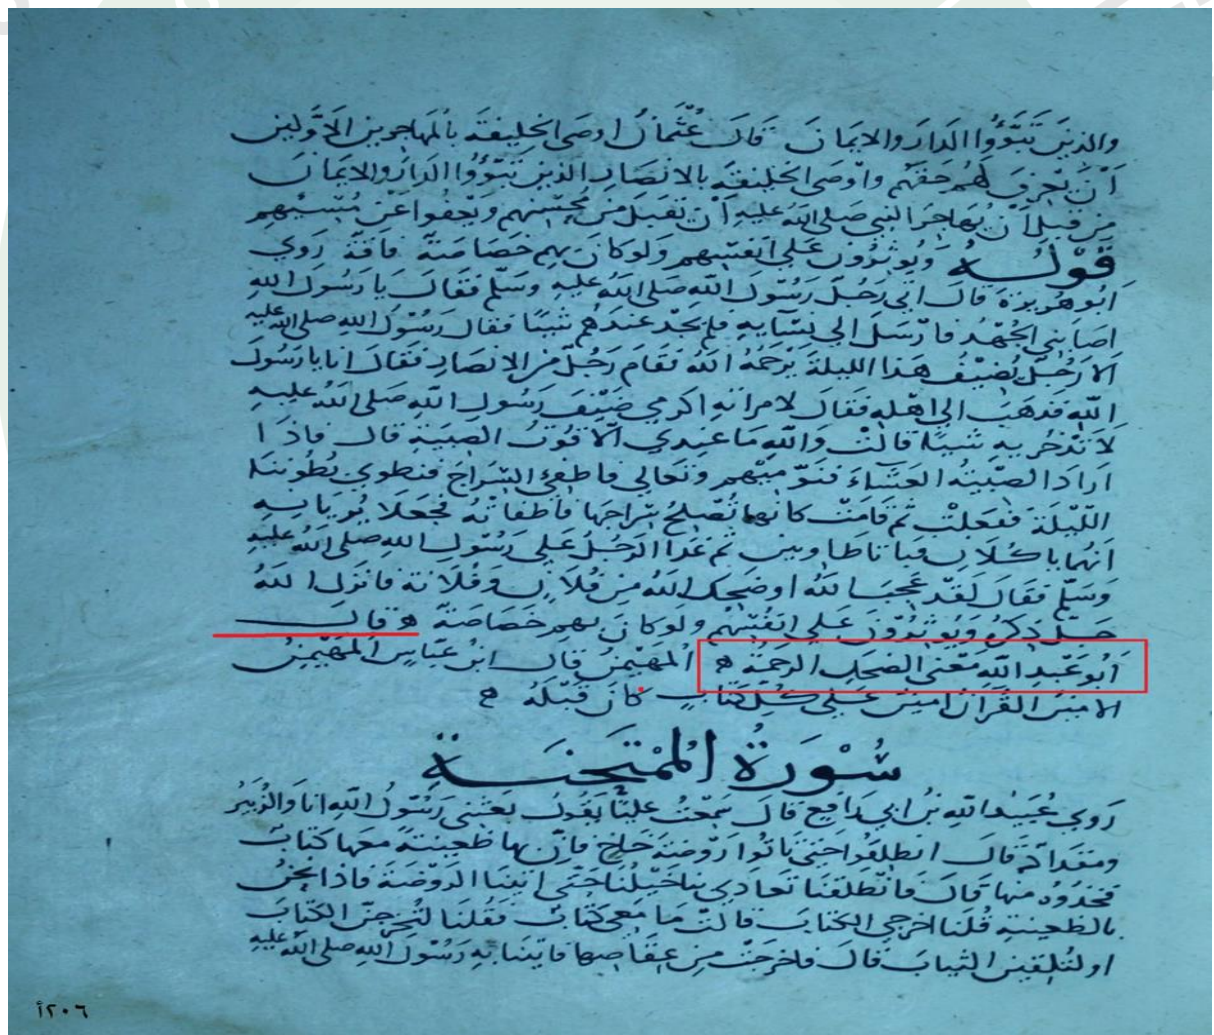 والذين تَبَوَّؤُا الدارَ والايمانَ قَالَ عُثْمانُ اوصى الخليفَة بالمهاجرين الاوّلين
اَن يَعْرِفَ لهُم حَقهُم واوْصى الخليفَة بالانصَارِ الذين تَبَوَّؤُا الدارَ والايمان
من قبل اَن يُهَاجرَ النبي صَلى الله عليه اَن تقبل من مُحْسنهم ويَعْفوا عَن مُسِيئهم
قَوْلُه وَيُوثِرُونَ عَلى انفسهم ولوكانَ بهم خَصَاصَة فاقة رَوى
اَبُو هُريرة قالَ اتى رَجُلٌ رَسُول الله صَلى الله عليه وسَلَّم فقالَ يا رَسُول الله
اصَابني الجُهْد فارْسَل الى نِسَايه فلم يجد عندهُم شيئا فقال رَسُوْل الله صلى الله عليه
الا رَجُلٌ يُضيفُ هَذا الليلةَ يَرْحَمُهُ الله فقامَ رَجُلٌ من الانصَار فقَال انا يا رَسُول
الله فذهَبَ الى اهْله فقَال لامراته اكرمي ضَيْفَ رَسُول الله صَلى الله عليه
لا تَدّخريه شيئا قالتْ والله مَا عندي الا قوتُ الصِبيَة قال فاذا
ارادَ الصِّبْيَةُ العَشاءَ فنوّميْهم وتعَالي فاطفئ السّراجَ فنطوي بُطُوننا
اللّيْلَة ففعَلتْ ثم قامَتْ كانها تُصْلحُ سِراجهَا فاطفَاتْهُ فجعَلا يُرِيَانه
انهُما ياكُلان فباتا طاويين ثم غدا الرّجُلُ عَلى رَسُول الله صلى الله عليه
وَسَلّم فقَالَ لقدْ عَجبَ الله اوضَحِكَ الله من فُلانٍ وَفُلَانة فانزل الله
جَلّ ذكرُه وَيُوثِرُونَ عَلى انفسهُم ولوكانَ بهم خَصَاصَة ه قال
اَبُو عَبْدِ الله مَعْنى الضحك الرحمَة ه المهَيْمن قال ابن عَبّاس المُهَيْمنُ
الامين القُرْان امين عَلى كُل كتابٍ كانَ قَبْلَهُ ه
سُوْرَةُ المُمْتَحِنَة
رَوى عُبَيْد الله بن ابي رَافع قالَ سَمعْتُ عليّا يقول بَعَثني رَسُولُ الله انا وَالزُبَيْر
ومقدادَ قالَ انطلقوا حَتى تاتوا رَوْضَة خاخ فانّ بها ظعينَة معَها كتابٌ
فخذوه منها قالَ فانطلقنَا تعَادى بنا خَيْلُنا حَتى اتينَا الرَوضَة فاذا نحن
بالظعينة قُلنَا اخرجي الكتابَ قالتْ مَا مَعى كتابٌ فقُلنَا لتُخرجنّ الكتابَ
اولتُلقين الثيابَ قالَ فاخرجَتْ من عِقاصِهَا فاتينا به رَسُول الله صلى الله عليه
٢٠٦أ